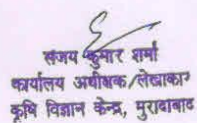 संजय कुमार शर्मा
कार्यालय अधीक्षक/लेखाकार
कृषि विज्ञान केन्द्र, मुरादाबाद